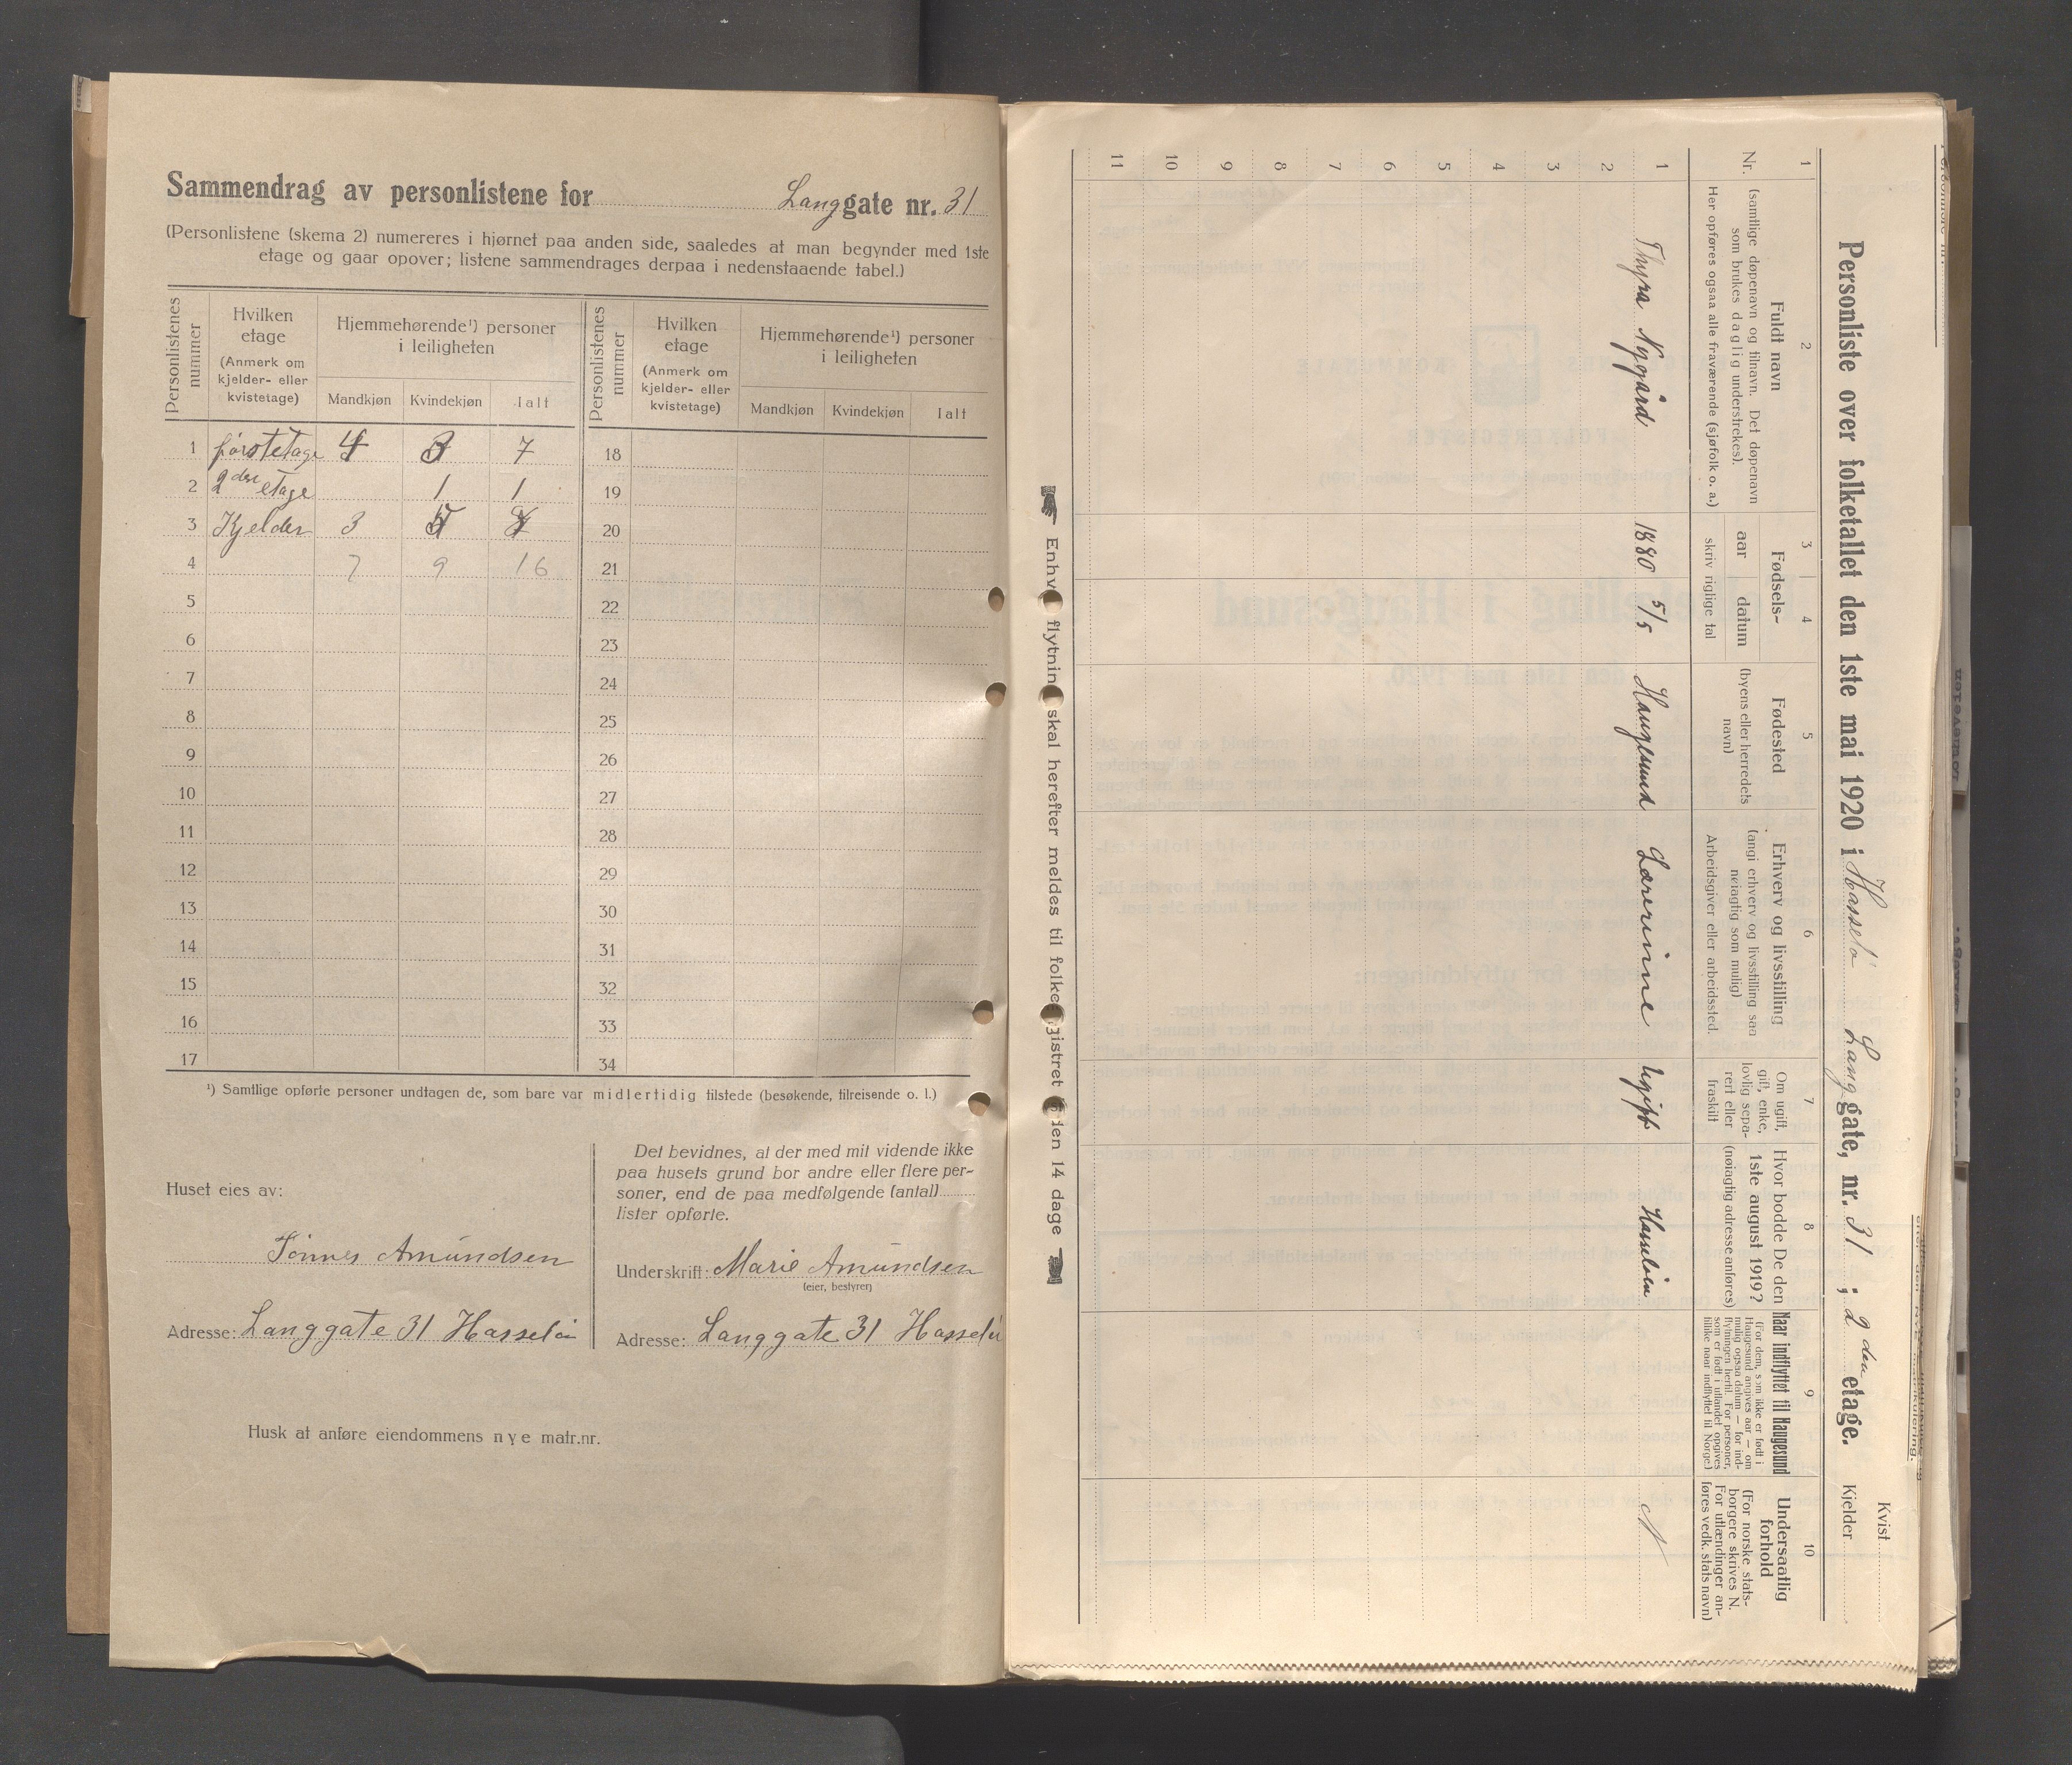 Sammendrag av personlistene for Langgate nr. 31
(Personlistene (skema 2) numereres i hjørnet paa anden side, saaledes at man begynder med 1ste
etage og gaar opover; listene sammendrages derpaa i nedenstaaende tabel.)
Personlistenes nummer
Hvilken etage (Anmerk om kjelder- eller kvistetage)
Hjemmehørende¹) personer i leiligheten
Mandkjøn Kvindekjøn Ialt
Personlistenes nummer
Hvilken etage (Anmerk om kjelder- eller kvistetage)
Hjemmehørende¹) personer i leiligheten
Mandkjøn Kvindekjøn Ialt
1 førstetage 4 3 7 18
2 2den etage 1 1 19
3 Kjelder 3 5 8 20
4 7 9 16 21
5 22
6 23
7 24
8 25
9 26
10 27
11 28
12 29
13 30
14 31
15 32
16 33
17 34
¹) Samtlige opførte personer undtagen de, som bare var midlertidig tilstede (besøkende, tilreisende o. l.)
Huset eies av:
Tønnes Amundsen
Adresse: Langgate 31 Hasselø
Det bevidnes, at der med mit vidende ikke
paa husets grund bor andre eller flere per-
soner, end de paa medfølgende (antal)
lister opførte.
Underskrift: Marie Amundsen
(eier, bestyrer)
Adresse: Langgate 31 Hasselø
Husk at anføre eiendommens nye matr.nr.
Kvist
Personliste over folketallet den 1ste mai 1920 i Hasselø Langgate, nr. 31 ; 2den etage. Kjelder
1 2 3 4 5 6 7 8 9 10
Nr.
Fuldt navn
(samtlige døpenavn og tilnavn. Det døpenavn
som brukes daglig understrekes).
Her opføres ogsaa alle fraværende (sjøfolk o. a.)
Fødsels-
aar datum
skriv riglige tal
Fødested
(byens eller herredets
navn)
Erhverv og livsstilling
(angi erhverv og livsstilling saa
nøiagtig som mulig)
Arbeidsgiver eller arbeidssted.
Om ugift,
gift, enke,
lovlig sepa-
rert eller
fraskilt
Hvor bodde De den
1ste august 1919?
(nøiagtig adresse anføres)
Naar indflyttet til Haugesund
(For dem, som ikke er født i
Haugesund angives aar — om
mulig ogsaa datum — for ind-
flytningen hertil. For personer,
som er født i utlandet opgives
tillike naar indflyttet til Norge.)
Undersaatlig
forhold
(For norske stats-
borgere skrives N.
For utlændinger an-
føres vedk. stats navn)
1 Thyra Nygård 1880 5/5 Haugesund Lærerinne Ugift Hasseløen N
2
3
4
5
6
7
8
9
10
11
Enhver flytning skal herefter meldes til folkeregistret inden 14 dage